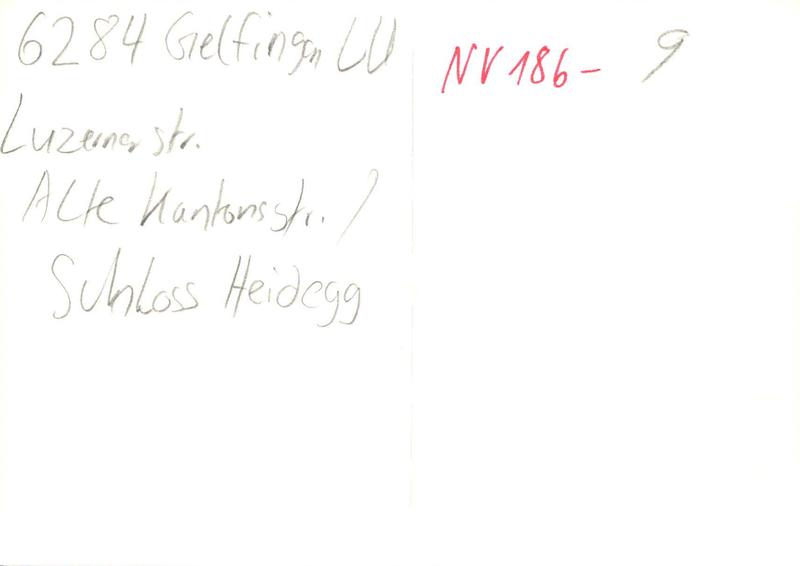 6284 Gelfingen LU
Luzernerstr.
Alte Kantonsstr. /
Schloss Heidegg
NV 186- 9